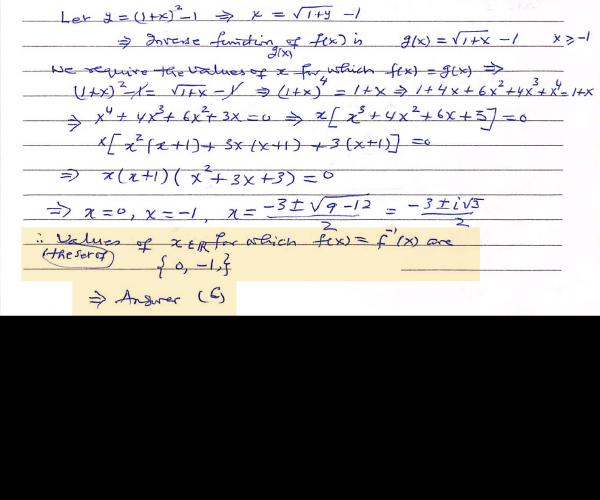 Let y = (1+x)² - 1 ⇒ x = √(1+y) - 1
⇒ Inverse function of f(x) is g(x) = √(1+x) - 1 x ≥ -1
g(x)
We require the values of x for which f(x) = g(x) ⇒
(1+x)² - 1 = √(1+x) - 1 ⇒ (1+x)⁴ = 1+x ⇒ 1+4x+6x²+4x³+x⁴=1+x
⇒ x⁴ + 4x³ + 6x² + 3x = 0 ⇒ x[x³ + 4x² + 6x + 3] = 0
x[x²(x+1) + 3x(x+1) + 3(x+1)] = 0
⇒ x(x+1)(x² + 3x + 3) = 0
⇒ x=0, x=-1, x = (-3 ± √(9-12))/2 = (-3 ± i√3)/2
∴ Values of x∈ℝ for which f(x) = f⁻¹(x) are
(the set of)
{0, -1,}
⇒ Answer (C)